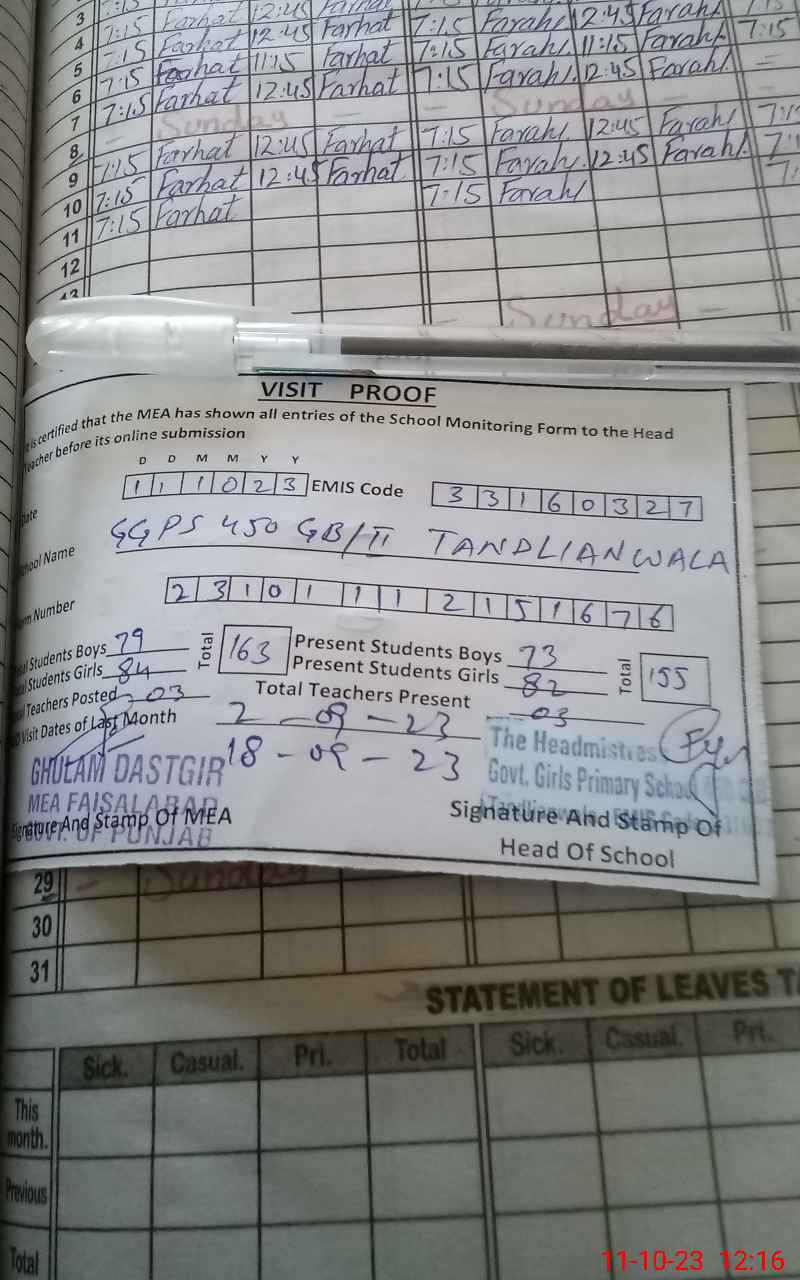 3 7:15 Farhat 12:45 Farhat 7:15 Farah 12:45 Farah
4 7:15 Farhat 12:45 Farhat 7:15 Farah 11:15 Farah 7:15
5 7:15 Farhat 11:15 Farhat 7:15 Farah 12:45 Farah
6 7:15 Farhat 12:45 Farhat
7 - Sunday - - - Sunday -
8 7:15 Farhat 12:45 Farhat 7:15 Farah 12:45 Farah
9 7:15 Farhat 12:45 Farhat 7:15 Farah 12:45 Farah
10 7:15 Farhat 7:15 Farah
11
12
13
- Sunday -
VISIT PROOF
is certified that the MEA has shown all entries of the School Monitoring Form to the Head
eacher before its online submission
D D M M Y Y
ate 1 1 1 0 2 3 EMIS Code 3 3 1 6 0 3 2 7
chool Name GGPS 450 GB/II TANDLIANWALA
rm Number 2 3 1 0 1 1 1 2 1 5 1 6 7 6
al Students Boys 79 Total 163 Present Students Boys 73 Total 155
al Students Girls 84 Present Students Girls 82
al Teachers Posted 03 Total Teachers Present 03
Visit Dates of Last Month 2-09-23
18-09-23
The Headmistress
GHULAM DASTGIR Govt. Girls Primary School
MEA FAISALABAD
GOVT. OF PUNJAB
Signature And Stamp Of MEA Signature And Stamp Of
Head Of School
29 - Sunday
30
31
STATEMENT OF LEAVES TA
Sick. Casual. Pri. Total Sick. Casual. Pri.
This
month.
Previous
Total
11-10-23 12:16